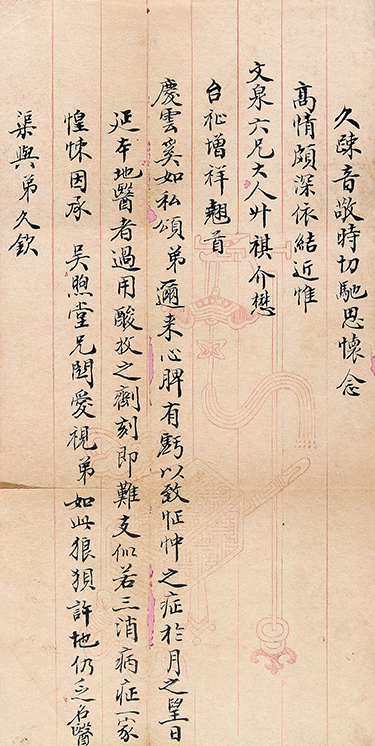 久疎音敬時切馳思懷念
高情頗深依結近惟
文泉六兄大人升祺介懋
台祉增祥翹首
慶雲奚如私頌弟邇来心脾有虧以致怔忡之症於月之望日
延本地醫者過用酸收之劑刻即難支似若三消病症一家
惶悚因承 吳煦堂兄関愛視弟如此狼狽許地仍乏名醫
渠與弟久欽